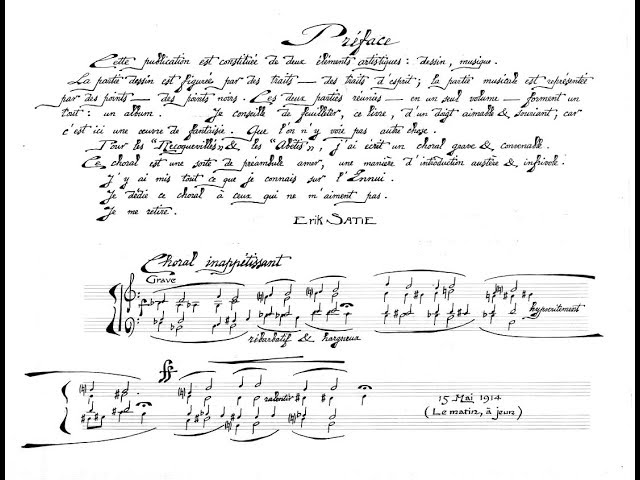 Préface
Cette publication est constituée de deux éléments artistiques : dessin, musique.
La partie dessin est figurée par des traits — des traits d'esprit ; la partie musicale est représentée
par des points — des points noirs. Ces deux parties réunies — en un seul volume — forment un
tout : un album. Je conseille de feuilleter, ce livre, d'un doigt aimable & souriant ; car
c'est ici une œuvre de fantaisie. Que l'on n'y voie pas autre chose.
Pour les "Recroquevillés" & les "Abêtis", j'ai écrit un choral grave & convenable.
Ce choral est une sorte de préambule amer, une manière d'introduction austère & infrivole.
J'y ai mis tout ce que je connais sur l'Ennui.
Je dédie ce choral à ceux qui ne m'aiment pas.
Je me retire.
Erik SATIE
Choral inappétissant
Grave
hypocritement
rébarbatif & hargneux
ff
ralentir
15 Mai 1914
(Le matin, à jeun)